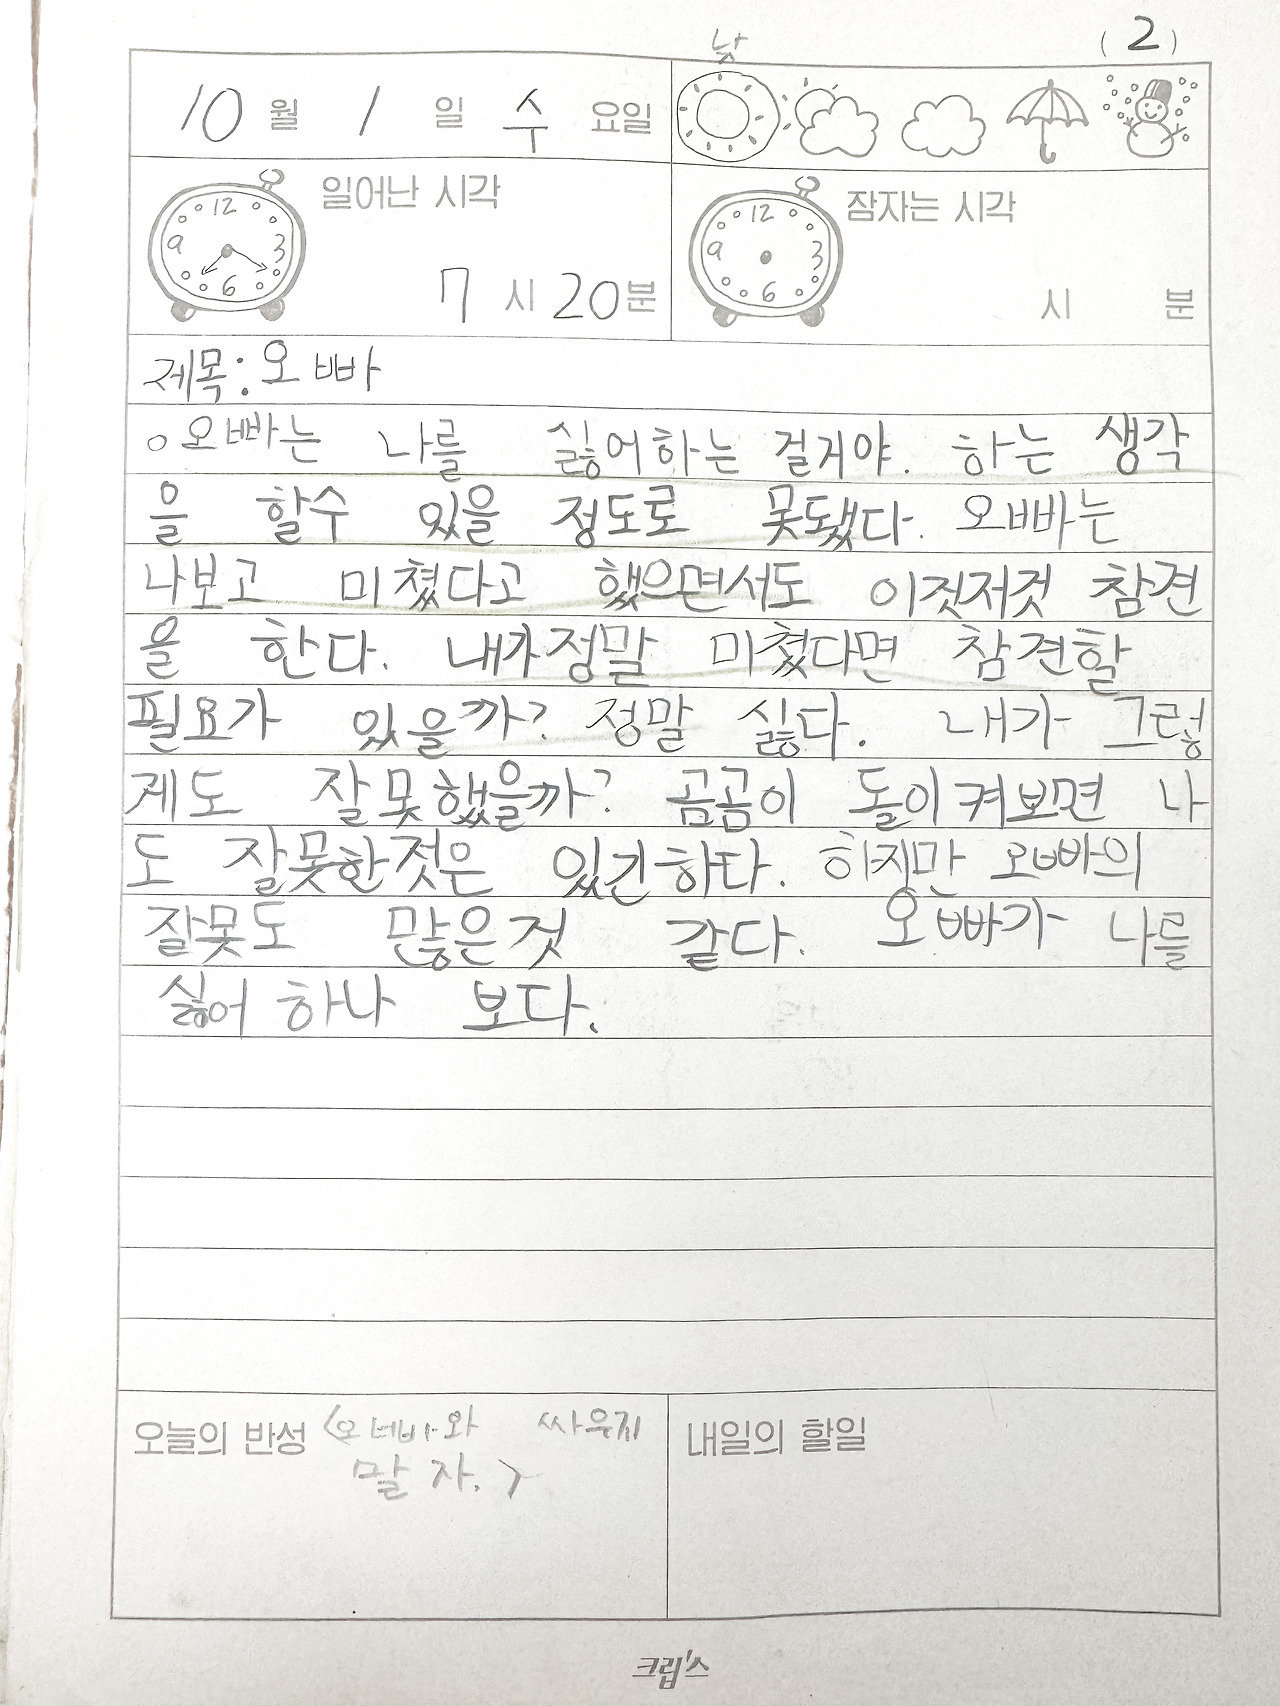 낮
(2)
10월 1일 수요일
일어난 시각
12
9 3
6
7시 20분
잠자는 시각
12
9 3
6
시 분
제목: 오빠
오빠는 나를 싫어하는 걸거야. 하는 생각
을 할수 있을 정도로 못됐다. 오빠는
나보고 미쳤다고 했으면서도 이것저것 참견
을 한다. 내가정말 미쳤다면 참견할
필요가 있을까? 정말 싫다. 내가 그렇
게도 잘못했을까? 곰곰이 돌이켜보면 나
도 잘못한것은 있긴하다. 하지만 오빠의
잘못도 많은것 같다. 오빠가 나를
싫어 하나 보다.
오늘의 반성 <오빠와 싸우지
말자.>
내일의 할일
크립스